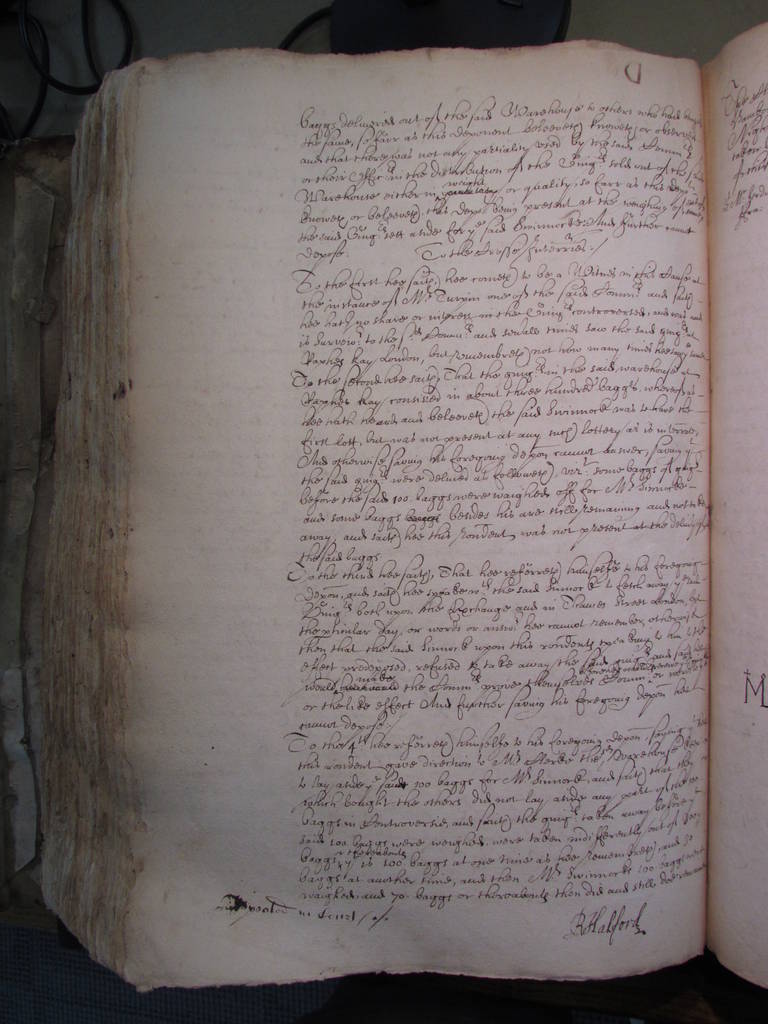 baggs delivered out of the said Warehouse to others who had bought
the same, so farr as this deponent beleeveth knoweth or observed
and that there was not any partiality used by the said Comm:rs
or their Officers in the distribution of the Ging:r sold out of the said
Warehouse either in weight or quality, so farr as this depon:t
knoweth or beleeveth, this depo:t being present at the weighing of
the said Ging:r sett aside for ye said Swinnocke. And further cannot
depose.
To the Crosse Interries./
To the first hee saith, hee cometh to be a Witnes in this Cause at
the instance of Mr Turpin one of the said Comm:rs and saith
hee hath no share or interest in the Ging:r controverted, and
is Survey:r to the s:d Comm:rs and severall times saw the said ging:r at
Ralphes Kay London, but remembreth not how many times hee saw
To the second hee saith, That the ging:r in the said warehouse at
Ralphes Kay consisted in about three hundred baggs, whereof as
hee hath heard and beleeveth the said Swinnock was to have the
first lott, but was not present at any such lottery as is interr:e,
And otherwise saving his foregoing depon cannot answer, saving yt
the said ging:r were delivered as followeth, viz:t some baggs of ging:r
before the said 100 baggs were waighed off for Mr Sinnocke
and some baggs besides his are still remaining and not taken
away, and saith hee this rendent was not present at the delivery of
the said baggs
To the third hee saith, That hee referreth himselfe to his foregoing
depon, and saith hee speake to the said Sinnock to fetch away ye said
Ging:r both upon the Exchange and in Thames street London, but
the perticular day, or words or answ:r hee cannot remember, otherwise
then that the said Sinnock upon this rendents speaking to him to the
effect predeposed, refused to take away the said ging:r and said
would make the Comm:rs prove themselves Comm:rs
or the like effect And further saving his foregoing depon hee
cannot depose./
To the 4th hee referreth himselfe to his foregoing depon, saying
this rendent gave direction to Mr Clerke the Warehouse keeper
to lay aside ye said 100 baggs for Mr Sinnock, and saith that they
which bought the others did not lay aside any part of the
baggs in Controversie, and saith the ging:r taken away before ye
said 100 baggs were weighed, were taken indifferently out of
baggs, yt is 100 baggs or thereabouts at one time as hee remembreth, and 30
baggs at another time, and then Mr Swinnocks 100 baggs were
waighed, and 70 baggs or thereabouts then did and still doe remaine
Repeated in Court /.
R Halford